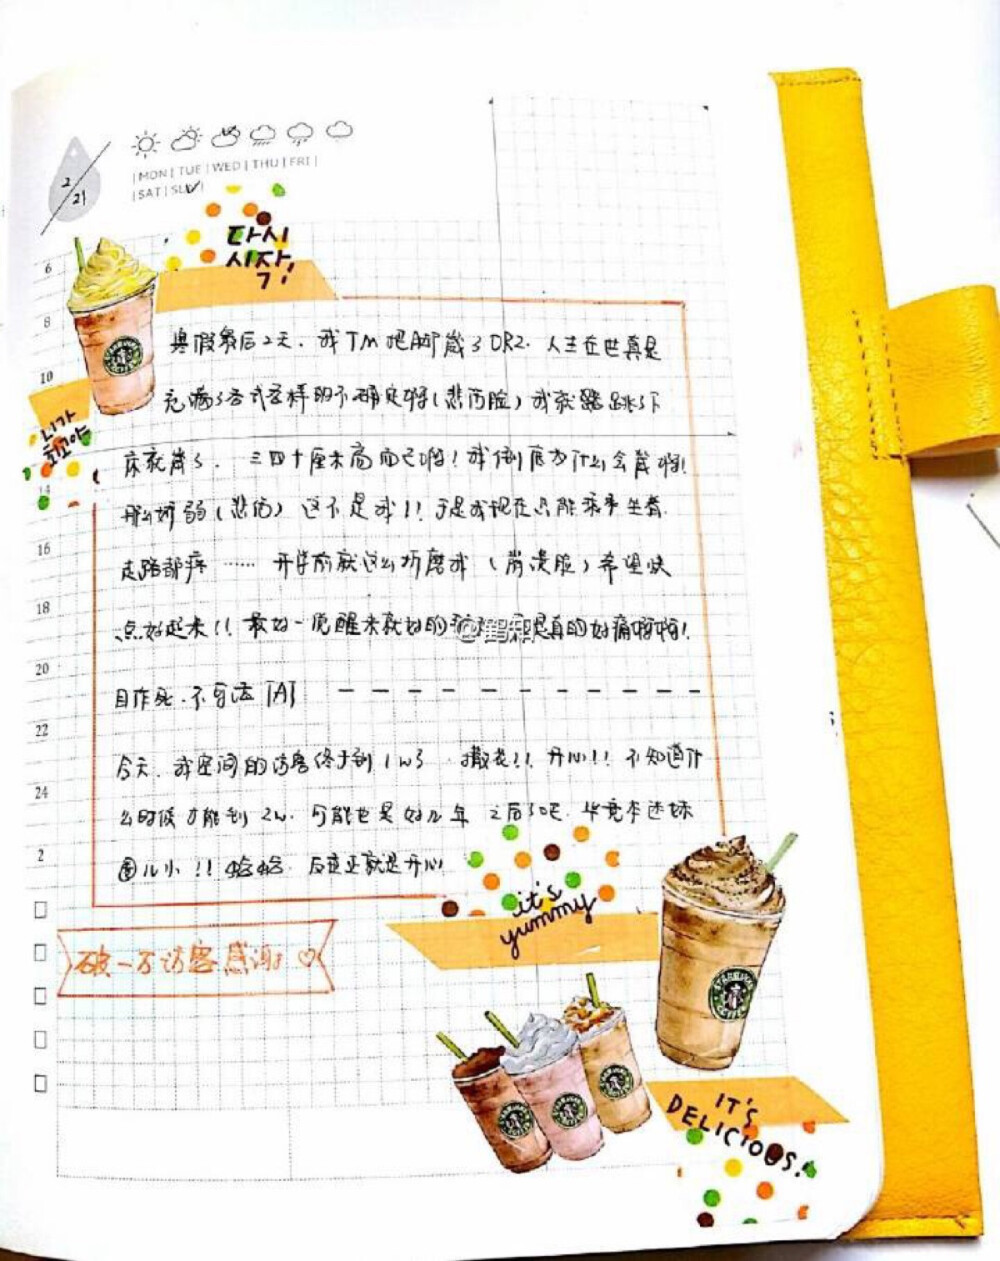 2/21
MON | TUE | WED | THU | FRI |
| SAT | SUN
다시
시작,
6
8
10
니가
최고야
14
16
18
20
22
24
2
STARBUCKS COFFEE
寒假最后2天，我TM把脚崴了ORZ．人生在世真是
充满了各式各样的不确定啊(悲伤脸)我就踏跳了下
床就崴了，三四十厘米高而已啊！我倒底为什么会崴啊！
那么娇弱(悲伤)这不是我！！于是我现在只能乖乖坐着．
走路都疼……开学前就这么折磨我（崩溃脸）希望快
点好起来！！最好一觉醒来就好的 真的好痛啊啊！
@鹤
自作死．不可活
今天．我空间的访客终于到1w了．撒花！！开心！！不知道什
么时候才能到2w．可能也是好几年之后了吧．毕竟本还妹
圈儿小！！哈哈．反正就是开心！
it's
yummy
破一万访客感谢♡
STARBUCKS COFFEE
IT'S
DELICIOUS!